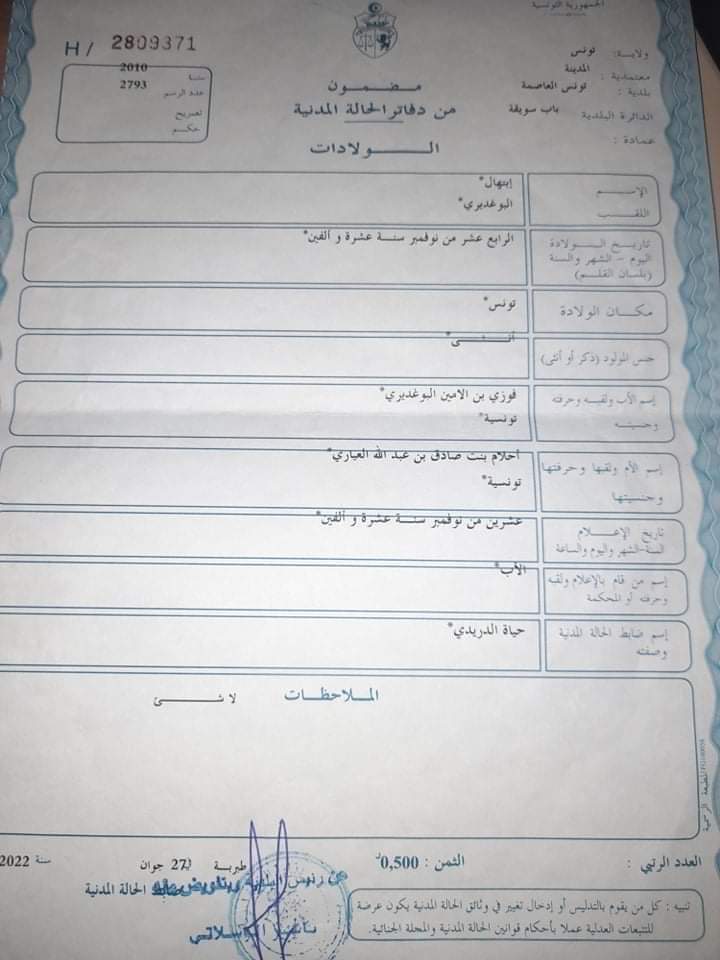 الجمهورية التونسية
ولاية : تونس
معتمدية : المدينة
بلدية : تونس العاصمة
الدائرة البلدية : باب سويقة
عمادة :
H/ 2809371
سنة 2010
عدد الرسم 2793
تصريح
حكم
مضمون
من دفاتر الحالة المدنية
الولادات
الإسم إبتهال*
اللقب البوغديري*
تاريخ الولادة
اليوم - الشهر والسنة
(بلسان القلم)
الرابع عشر من نوفمبر سنة عشرة و ألفين*
مكان الولادة تونس*
جنس المولود (ذكر أو أنثى) أنثى*
إسم الأب ولقبه وحرفته
وجنسيته
فوزي بن الامين البوغديري*
تونسية*
إسم الأم ولقبها وحرفتها
وجنسيتها
أحلام بنت صادق بن عبد الله العياري*
تونسية*
تاريخ الإعلام
السنة-الشهر واليوم والساعة
عشرين من نوفمبر سنة عشرة و ألفين*
إسم من قام بالإعلام ولقبه
وحرفته أو المحكمة
الأب*
إسم ضابط الحالة المدنية
وصفته
حياة الدريدي*
الملاحظات
لا شئ
المطبعة الرسمية
العدد الرتبي :
الثمن : 0,500د
طبربة في 27 جوان سنة 2022
عن رئيس البلدية وبتفويض منه
ضابط الحالة المدنية
تنبيه : كل من يقوم بالتدليس أو إدخال تغيير في وثائق الحالة المدنية يكون عرضة
للتتبعات العدلية عملا بأحكام قوانين الحالة المدنية والمجلة الجنائية.